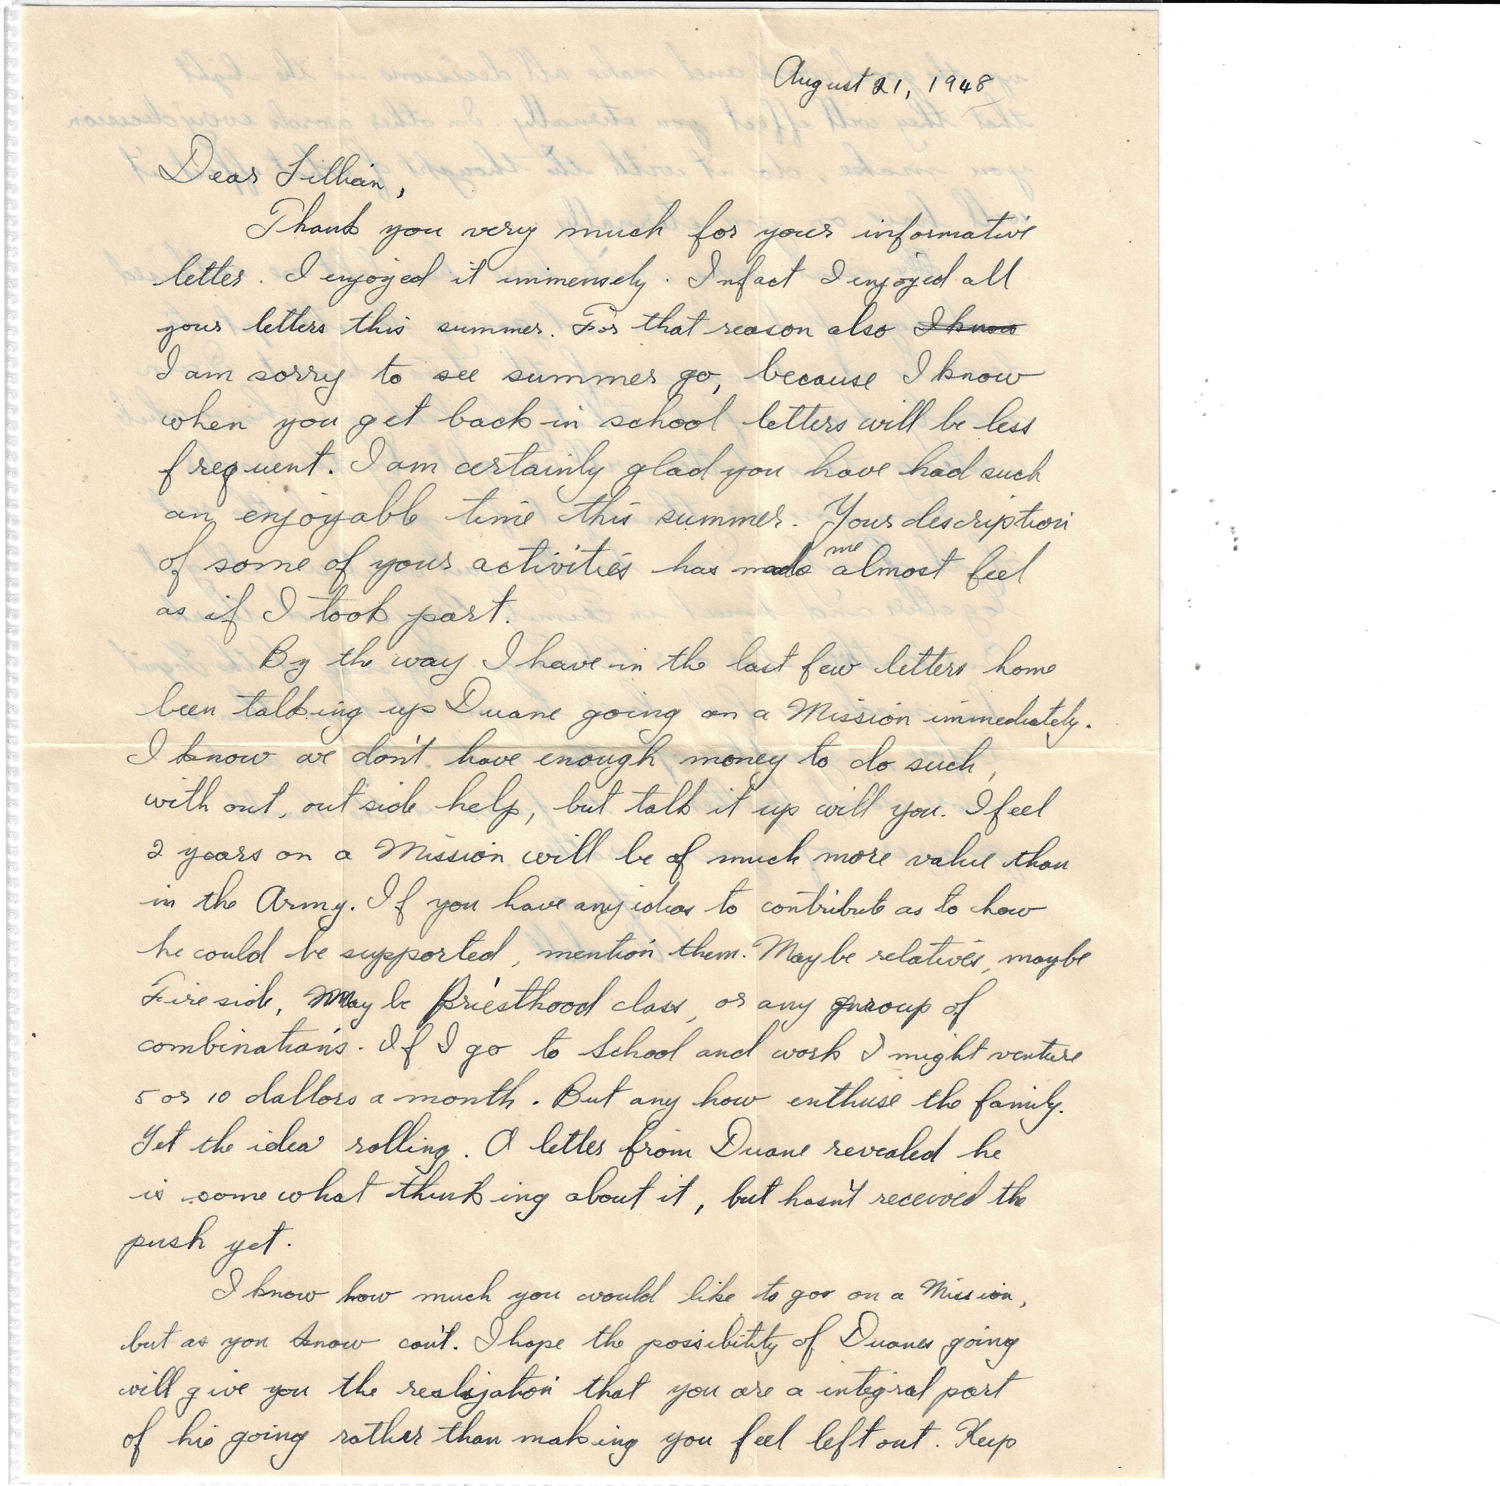 August 21, 1948
Dear Lillian,
Thank you very much for your informative
letter. I enjoyed it immensely. Infact I enjoyed all
your letters this summer. For that reason also I know
I am sorry to see summer go, because I know
when you get back in school letters will be less
frequent. I am certainly glad you have had such
an enjoyable time this summer. Your description
of some of your activities has made me almost feel
as if I took part.
By the way I have in the last few letters home
been talking up Duane going on a Mission immediately.
I know we don't have enough money to do such,
with out, out side help, but talk it up will you. I feel
2 years on a Mission will be of much more value than
in the Army. If you have any ideas to contribute as to how
he could be supported, mention them. Maybe relatives, maybe
Fireside, May be Priesthood class, or any group of
combinations. If I go to School and work I might venture
5 or 10 dallors a month. But any how enthuse the family.
Get the idea rolling. A letter from Duane revealed he
is somewhat thinking about it, but hasn't received the
push yet.
I know how much you would like to go on a Mission,
but as you know can't. I hope the possibility of Duanes going
will give you the realization that you are a integral part
of his going rather than making you feel left out. Keep